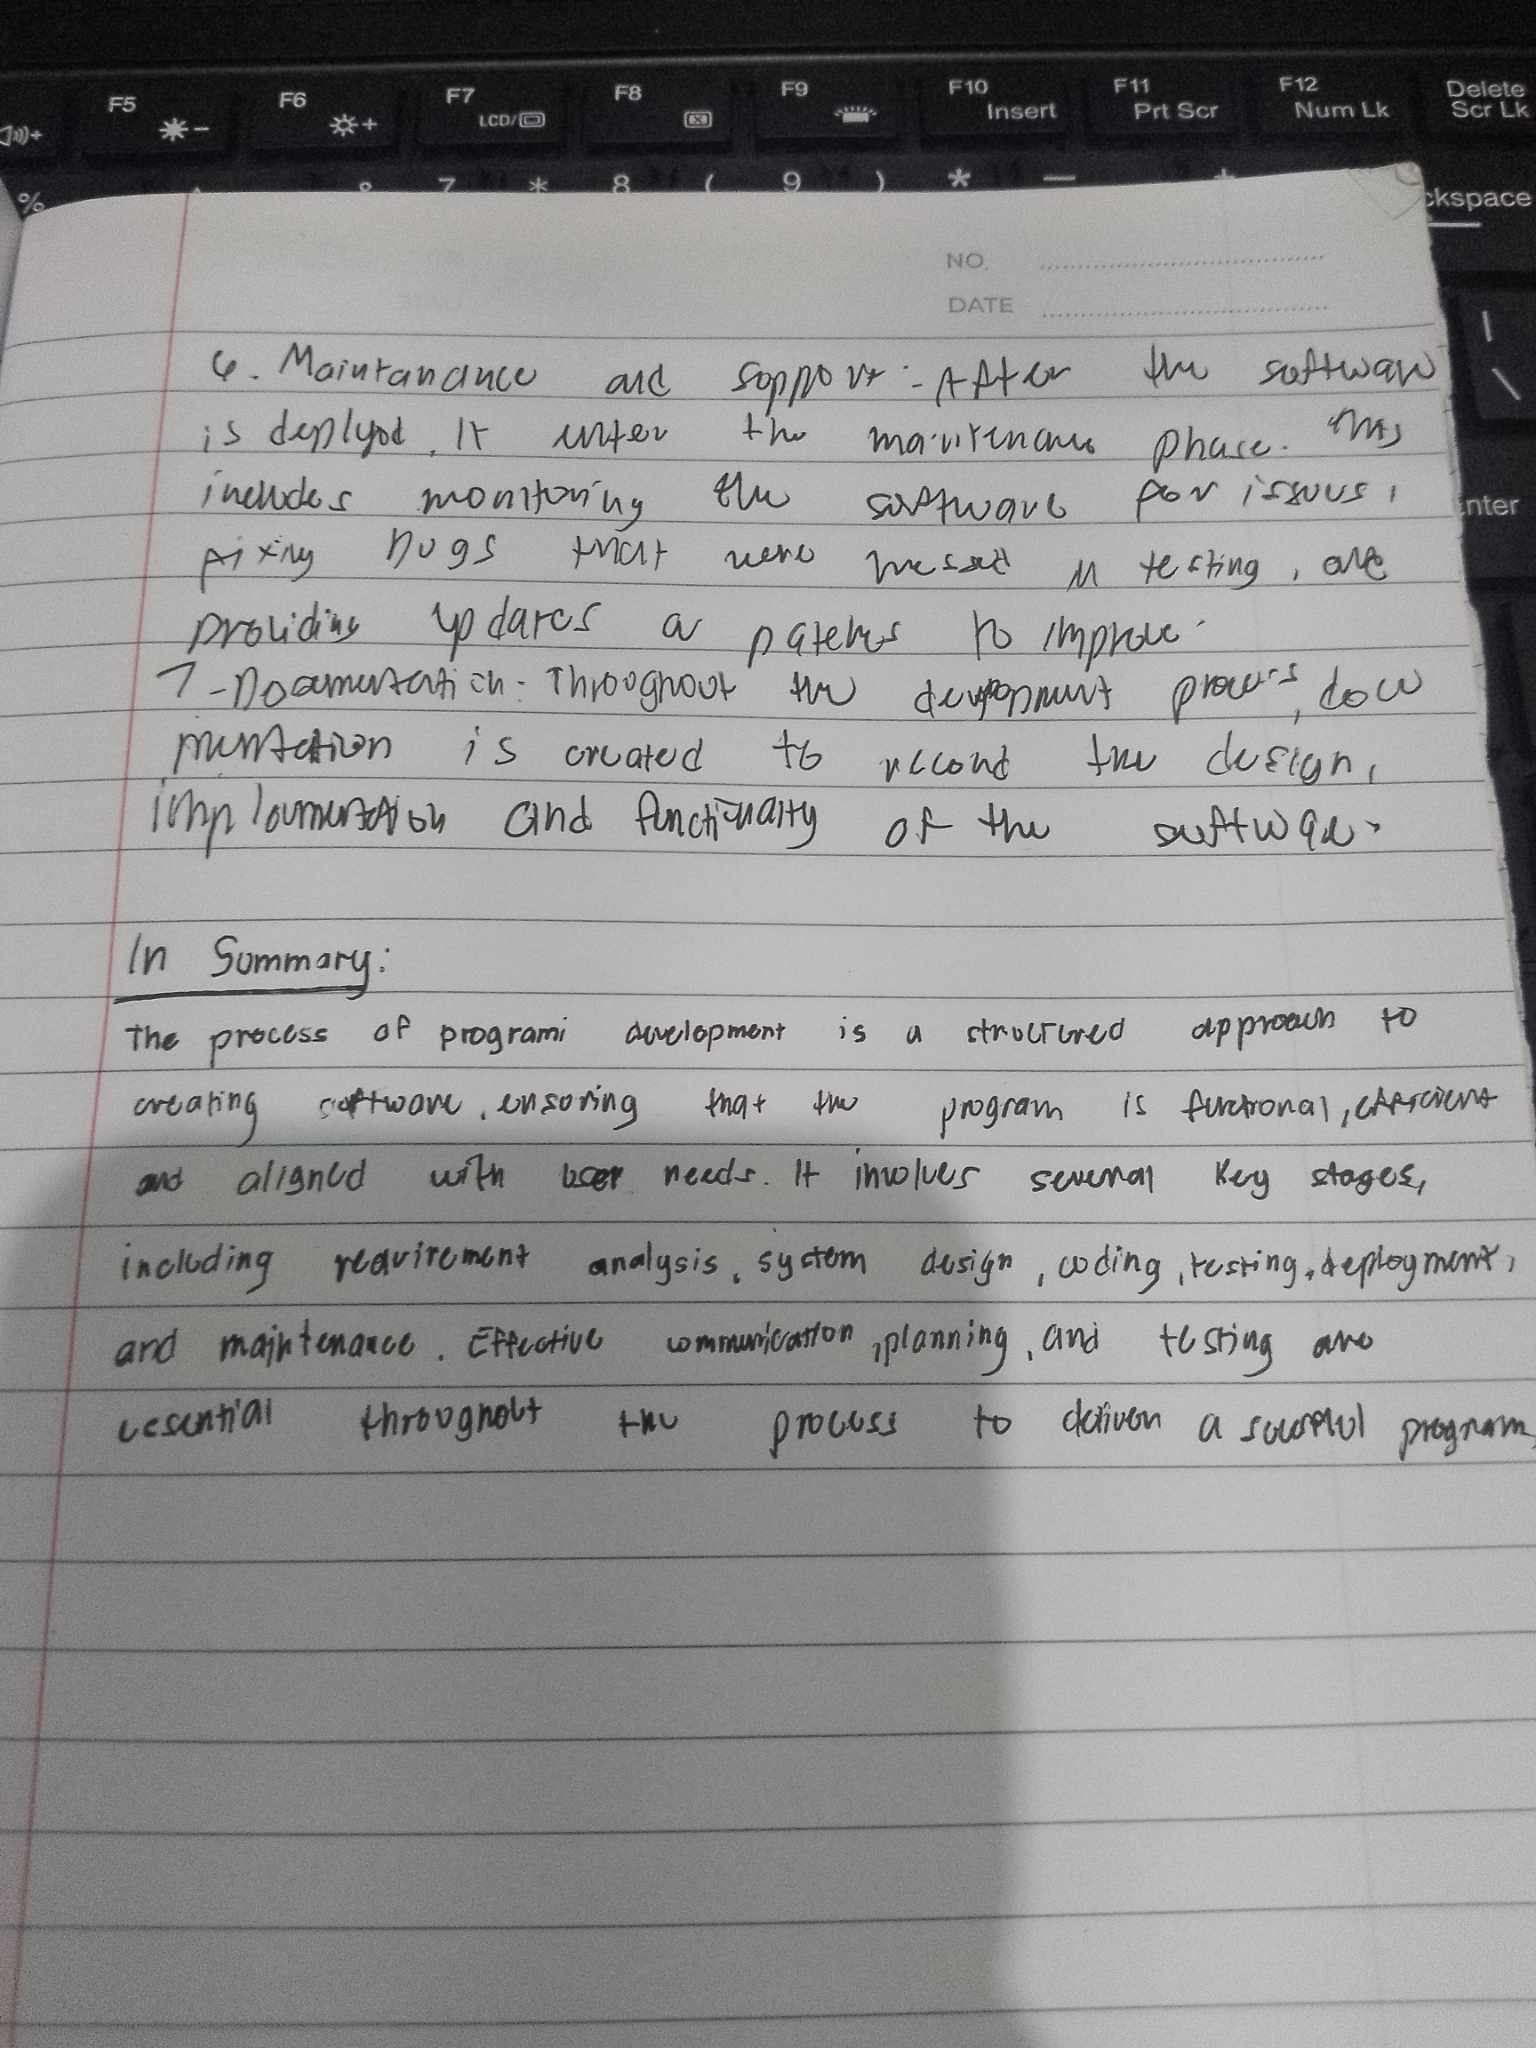 F5 F6 F7 LCD/ F8 F9 F10 Insert F11 Prt Scr F12 Num Lk Delete Scr Lk
% & 7 * 8 ( 9 ) * — + ckspace
NO.
DATE
6. Maintanance and support - After the software
is deplyod, It enter the maintenance phase. This
includes monitoring the software for issues,
fixing bugs that were missed in testing, and
providing updates or patches to improve.
7 - Documentation - Throughout the development process, docu
mentation is created to record the design,
implementation and functionality of the software.
In Summary:
The process of programi development is a structured approach to
creating software, ensuring that the program is functional, efficient
and aligned with user needs. It involves several key stages,
including requirement analysis, system design, coding, testing, deployment,
and maintenance. Effective communication, planning, and testing are
essential throughout the process to deliver a program.
enter